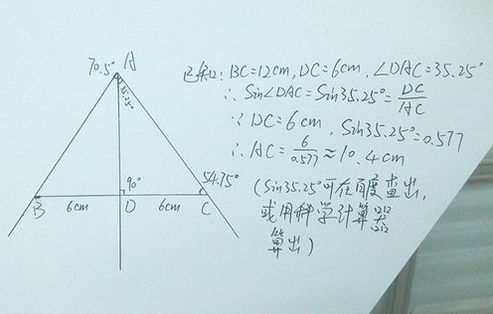 70.5° A
35.25°
已知: BC=12cm, DC=6cm, ∠DAC=35.25°
∴ Sin∠DAC=Sin35.25°=DC/AC
∵ DC=6cm, Sin35.25°=0.577
∴ AC=6/0.577≈10.4cm
90° 54.75°
(Sin35.25°可在百度查出,
B 6cm D 6cm C
或用科学计算器
算出)